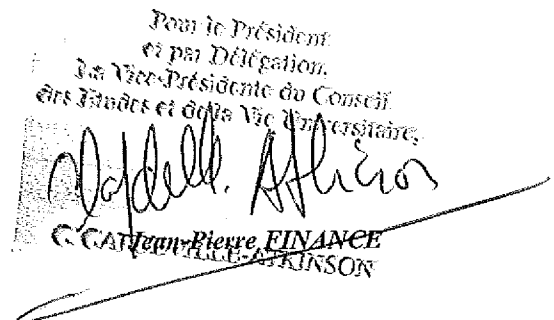 Pour le Président
et par Délégation,
La Vice-Présidente du Conseil
des Etudes et de la Vie Universitaire,
Jean-Pierre FINANCE
C. -ATKINSON